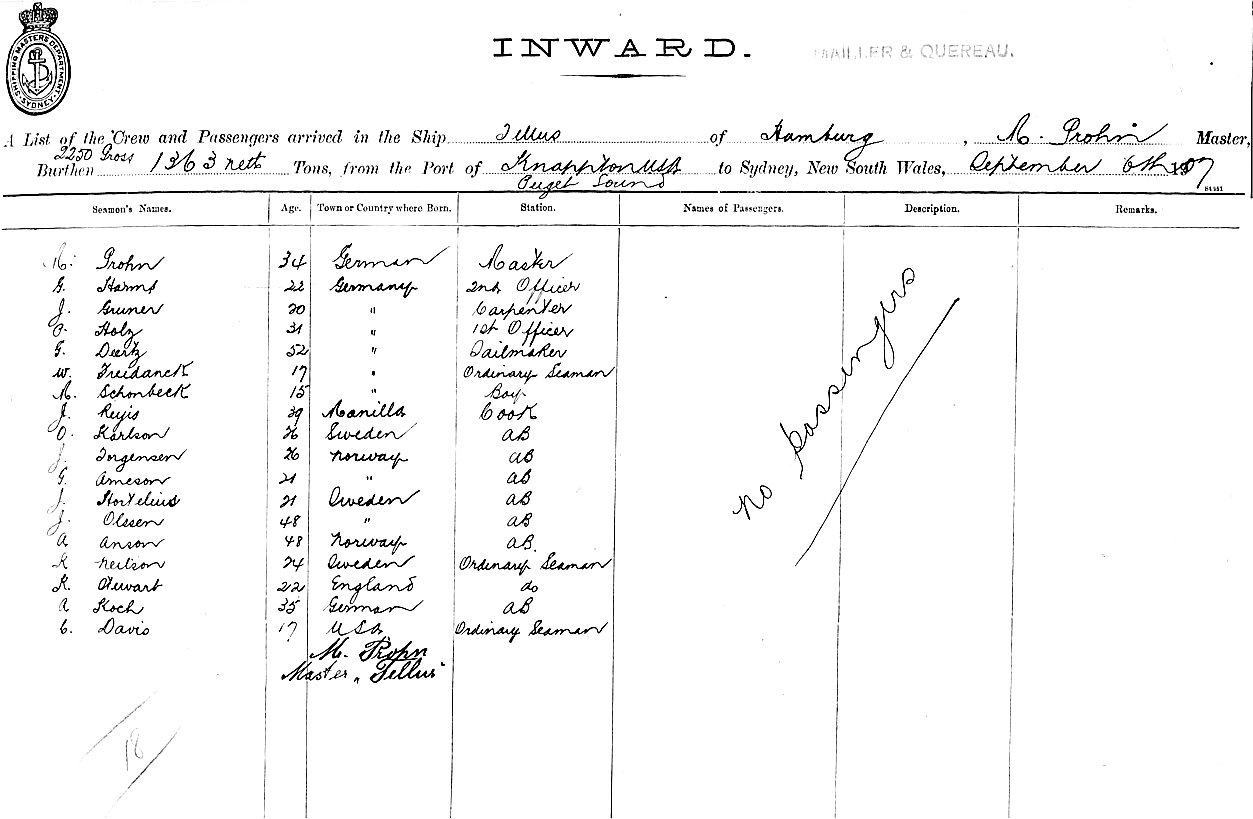 SHIPPING MASTERS DEPARTMENT SYDNEY
INWARD.
MAILLER & QUEREAU.
A List of the Crew and Passengers arrived in the Ship Tellus of Hamburg, M. Prohn Master,
Burthen 2250 Gross 1363 nett Tons, from the Port of Knappton USA Puget Sound to Sydney, New South Wales, September 6th 1907
Seamen's Names. Age. Town or Country where Born. Station. Names of Passengers. Description. Remarks.
M. Prohn 34 German Master
G. Harms 22 Germany 2nd Officer
J. Gruner 20 " Carpenter
O. Holz 31 " 1st Officer
G. Deertz 52 " Sailmaker
W. Freidanck 17 " Ordinary Seaman
M. Schonbeck 15 " Boy
J. Reyis 39 Manilla Cook
O. Karlson 26 Sweden AB
J. Jorgensen 26 Norway AB
G. Arneson 21 " AB
J. Hortelius 21 Sweden AB
J. Olssen 48 " AB
A Anson 48 Norway AB.
K Neilson 24 Sweden Ordinary Seaman
K. Stewart 22 England do
A Koch 35 German AB
C. Davis 17 USA Ordinary Seaman
No passengers
M. Prohn
Master „Tellus"
18